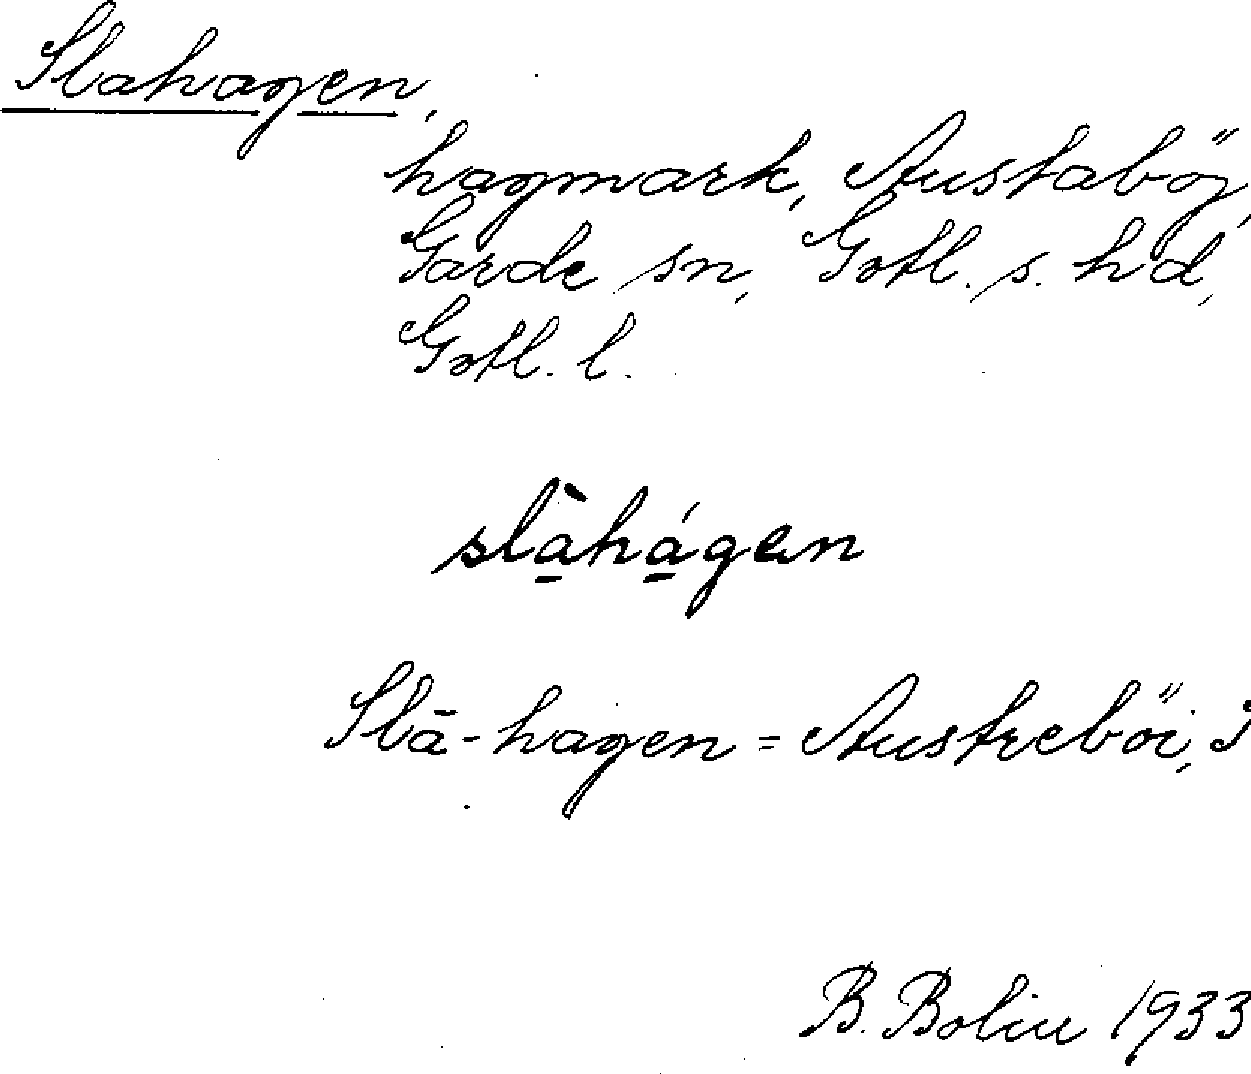 Slahagen,
hagmark, Austaböj,
Garde sn, Gotl. s. hd,
Gotl. l.
slà̠há̠gen
Slā-hagen = Austreböi,
B. Bolin 1933